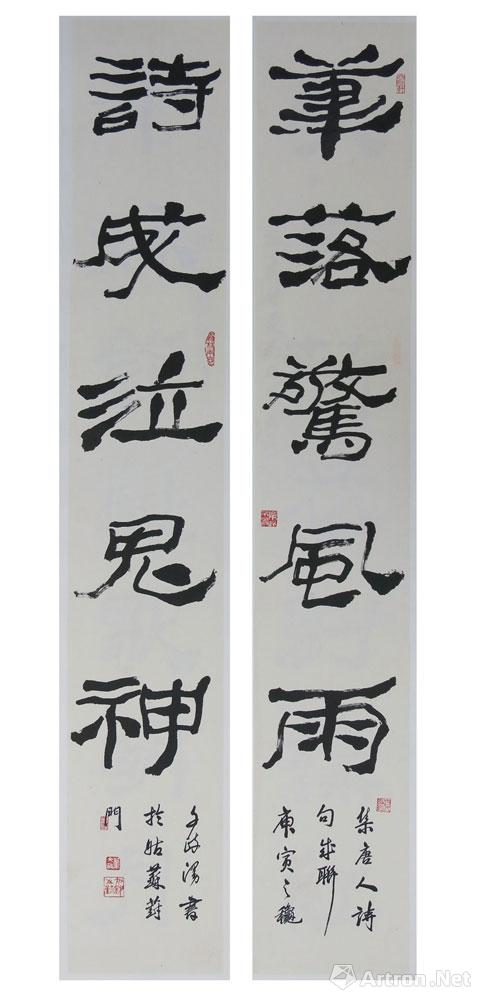 筆落驚風雨
集唐人詩
句成聯
庚寅之穐
詩成泣鬼神
書
於姑蘇葑
門
Artron.Net